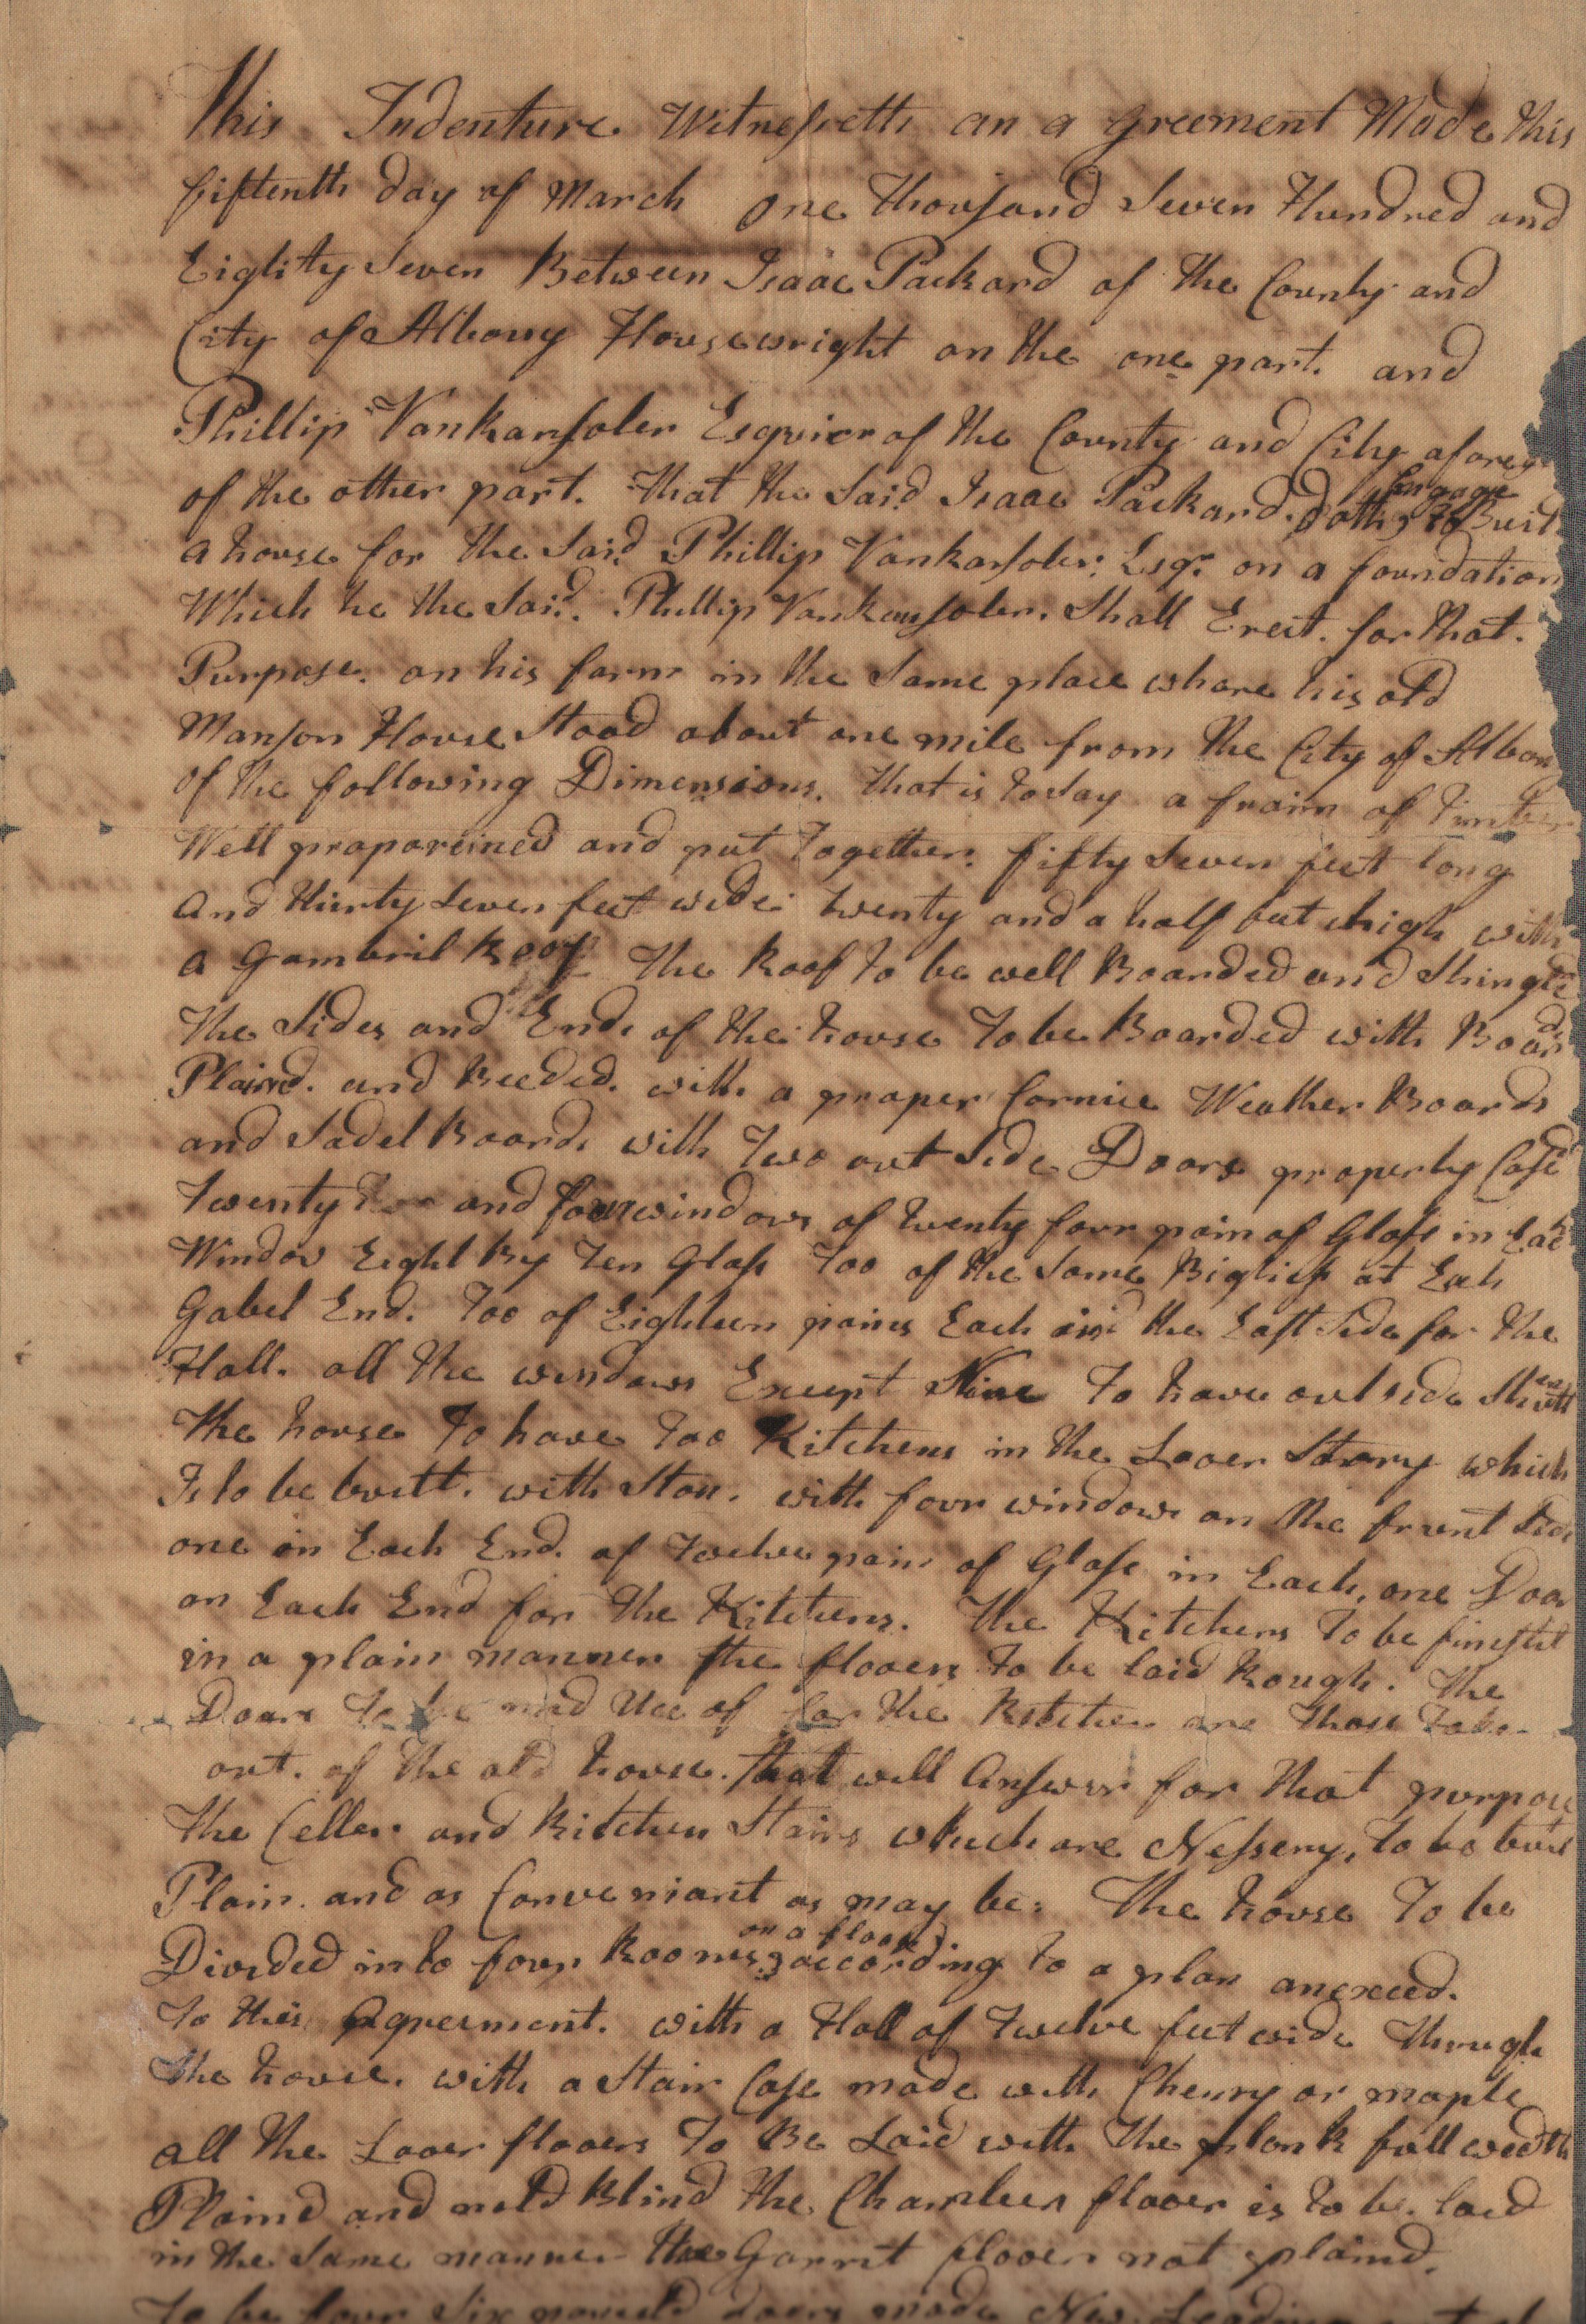 This Indenture Witnesseth an a greement Made this
fiftenth day of March One thousand Seven Hundred and
Eighty Seven Between Isaac Packard of the County and
City of Albony Housewright on the one part. and
Phillip Vankansoler Esquier of the County and City afores
of the other part. that the Said Isaac Packard. Doth, Engage to Buil
a house for the Said Phillip Vankansoler: Esqr. on a foundation
Which he the Said. Phillip Vankansoler. Shall Erect. for that.
Purpose. on his farm in the Same place whare his old
Manson House Stood about one mile from the City of Albony
of the following Dimensions. that is to Say a fraim of timber
Well proporcined and put together. fifty Seven feet long
and thirty Seven feet wide twenty and a half feet high with
a Gambril Roof The Roof to be well Boarded and Shingled
The Sides and Ends of the house to be Boarded with Boards
Plaind. and Beeded. with a proper Cornice Weather Boards
and Sadel Boards with Two out Side Doors properly Cased
Twenty and four windows of twenty four pain of Glass in Each
Window Eight By Ten Glass Too of the Same Bigness at Each
Gabel End. Too of Eighteen pains Each in the East Side for the
Hall. all the windows Except Nine To have outside Shutters
The house To have Too Kitchens in the Looer Story which
Is to be built. with Ston. with four windows on the frunt Side
one in Each End. of Twelve pain of Glass in Each, one Door
on Each End for the Kitchens. The Kitchens To be finisht
in a plain manner the flooers To be laid Rough. The
Doors To be mad Uce of for the Kitchen are those Taken
out. of the old house. that will Answer for that purpose
The Celler and Kitchen Stairs which are Nessery, To be built
Plain. and as Conveniant as may be: The house To be
Divided into four Rooms on a floor, according to a plan anexced.
To this Agreement. with a Hall of Twelve feet wide through
the house. with a Stair Case made with Cherry or maple
all the Looer flooers To Be Laid with the plank full wedth
Plaind and Blind the Chamber flooer is to be. laid
in the Same manner the Garrit flooer not plaind.
To be four Six doors made New